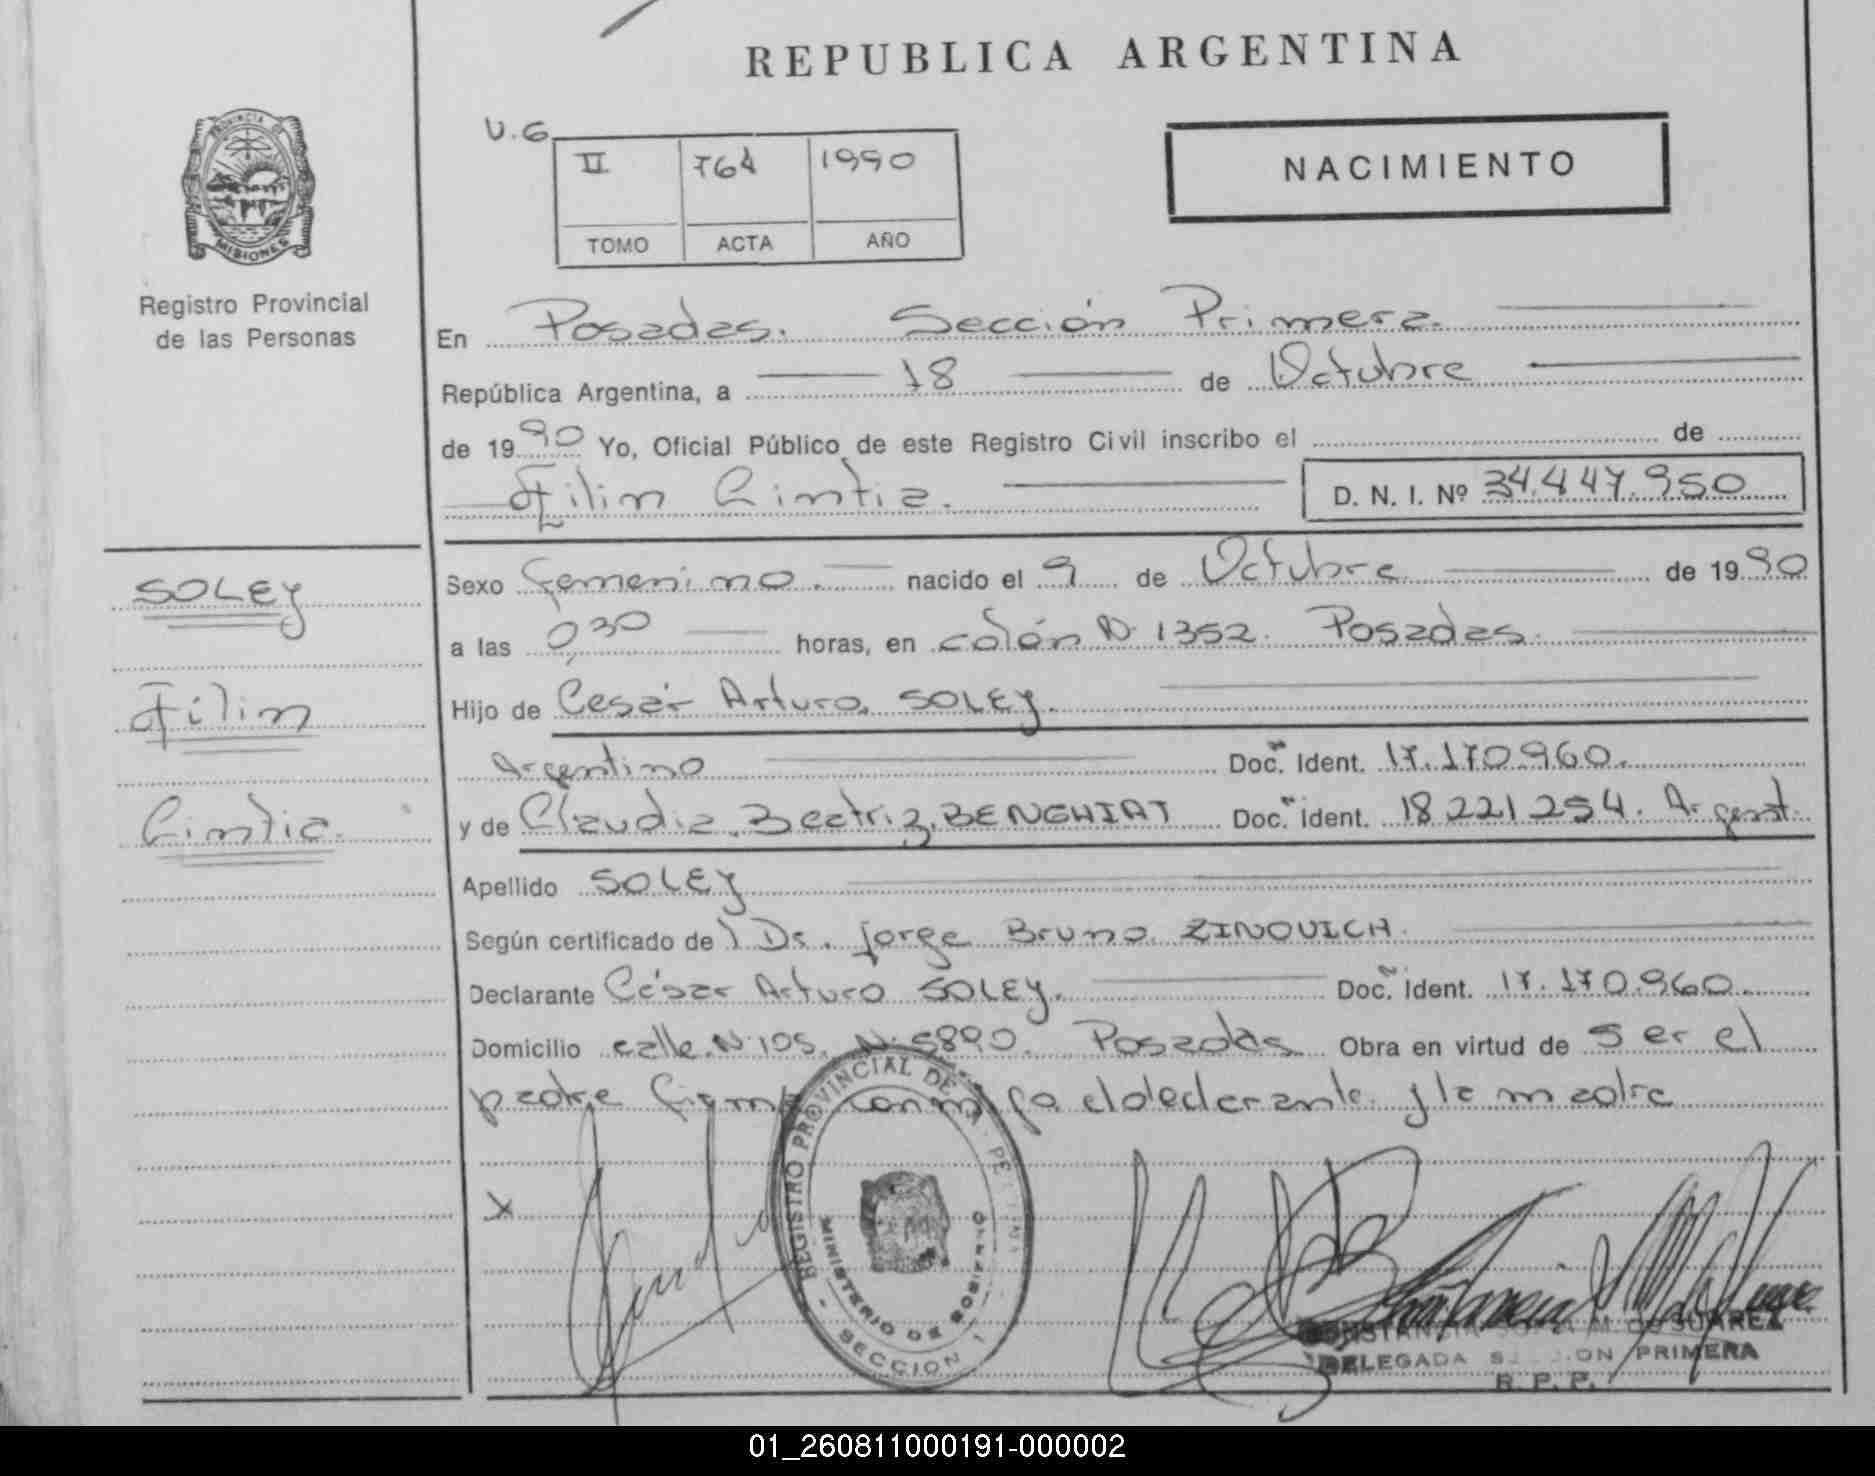 REPUBLICA ARGENTINA
U.G
II 764 1990
TOMO ACTA AÑO
NACIMIENTO
PROVINCIA DE
MISIONES
Registro Provincial
de las Personas
En Posadas. Sección Primera.
República Argentina, a 18 de Octubre
de 1990 Yo, Oficial Público de este Registro Civil inscribo el de
Cintia.
D. N. I. Nº 34.447.950
SOLEY
Cintia.
Sexo femenino. nacido el 9 de Octubre de 1990
a las 0,30 horas, en colón N 1352. Posadas.
Hijo de Cesar Arturo. SOLEY.
Argentino Doc. Ident. 17.170.960.
y de Claudia Beatriz BENGHIAT Doc. ident. 18 221 254. Argent.
Apellido SOLEY
Según certificado de l Dr. Jorge Bruno ZINOVICH.
Declarante César Arturo SOLEY. Doc. Ident. 17.170.960.
Domicilio calle N 105. N 5890. Posadas Obra en virtud de Ser el
padre el declarante y la madre
X
REGISTRO PROVINCIAL DE
MINISTERIO DE GOBIERNO
SECCION 1
M. de SUAREZ
DELEGADA PRIMERA
R. P. P.
01_260811000191-000002